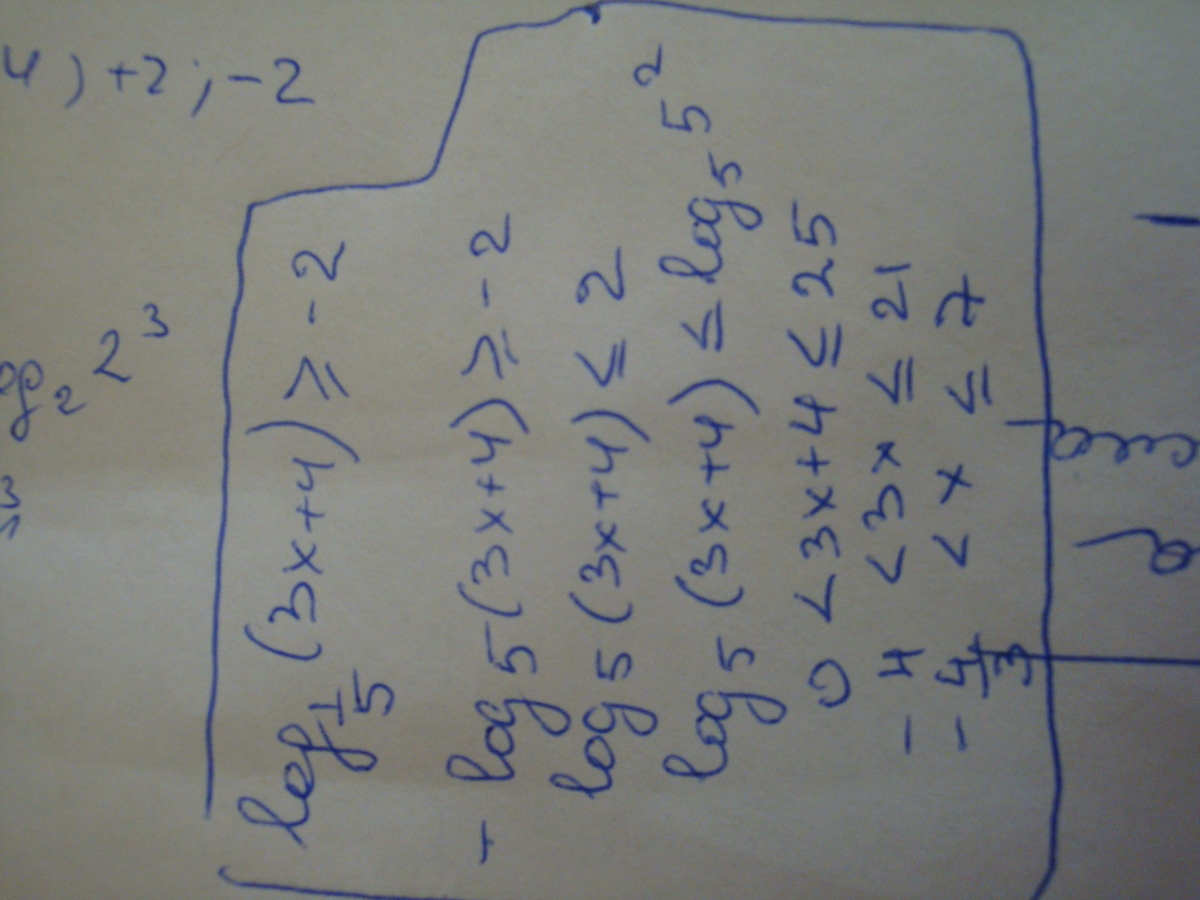 4) +2; -2
log₂ 2³
3
log_{1/5} (3x+4) ≥ -2
- log₅ (3x+4) ≥ -2
log₅ (3x+4) ≤ 2
log₅ (3x+4) ≤ log₅ 5²
0 < 3x+4 ≤ 25
-4 < 3x ≤ 21
-4/3 < x ≤ 7